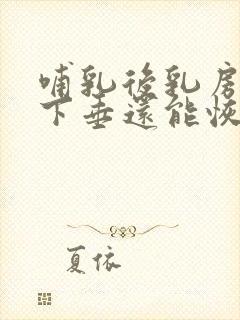 哺乳後乳房
下垂還能恢
夏依